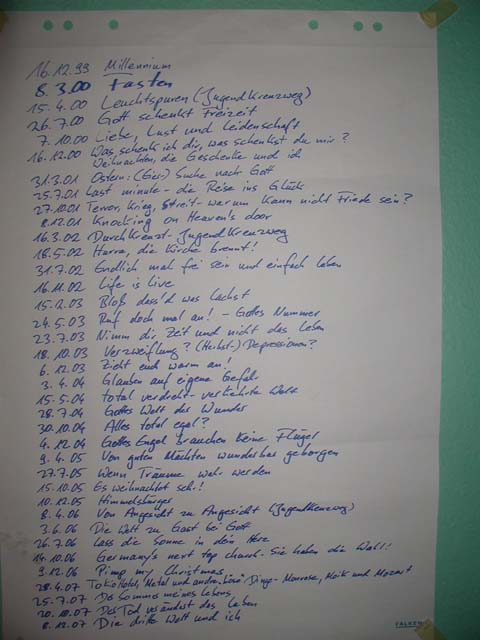 16.12.99 Millennium
8.3.00 Fasten
15.4.00 Leuchtspuren (Jugendkreuzweg)
26.7.00 Gott schenkt Freizeit
7.10.00 Liebe, Lust und Leidenschaft
16.12.00 Was schenk ich dir, was schenkst du mir?
Weihnachten, die Geschenke und ich
31.3.01 Ostern: (Eier-) Suche nach Gott
25.7.01 Last minute - die Reise ins Glück
27.10.01 Terror, Krieg, Streit - warum kann nicht Friede sein?
8.12.01 Knocking on Heaven's door
16.3.02 DurchKreuzt - Jugendkreuzweg
18.5.02 Hurra, die Kirche brennt!
31.7.02 Endlich mal frei sein und einfach leben
16.11.02 Life is live
15.2.03 Bloß dass'd was lachst
24.5.03 Ruf doch mal an! - Gottes Nummer
23.7.03 Nimm dir Zeit und nicht das Leben
18.10.03 Verzweiflung? (Herbst-) Depressionen?
6.12.03 Zieht euch warm an!
3.4.04 Glauben auf eigene Gefahr
15.5.04 total verdreht - verkehrte Welt
28.7.04 Gottes Welt der Wunder
30.10.04 Alles total egal?
4.12.04 Gottes Engel brauchen keine Flügel
9.4.05 Von guten Mächten wunderbar geborgen
27.7.05 Wenn Träume wahr werden
15.10.05 Es weihnachtet sehr!
10.12.05 Himmelsbürger
8.4.06 Von Angesicht zu Angesicht (Jugendkreuzweg)
3.6.06 Die Welt zu Gast bei Gott
26.7.06 Lass die Sonne in dein Herz
14.10.06 Germany's next top church - Sie haben die Wahl!
9.12.06 Pimp my Christmas
28.4.07 Tokio Hotel, Metal und andre Dinge - Monrose, Maik und Mozart
25.7.07 Der Sommer meines Lebens
20.10.07 Der Tod verändert das Leben
8.12.07 Die dritte Welt und ich
FALKEN